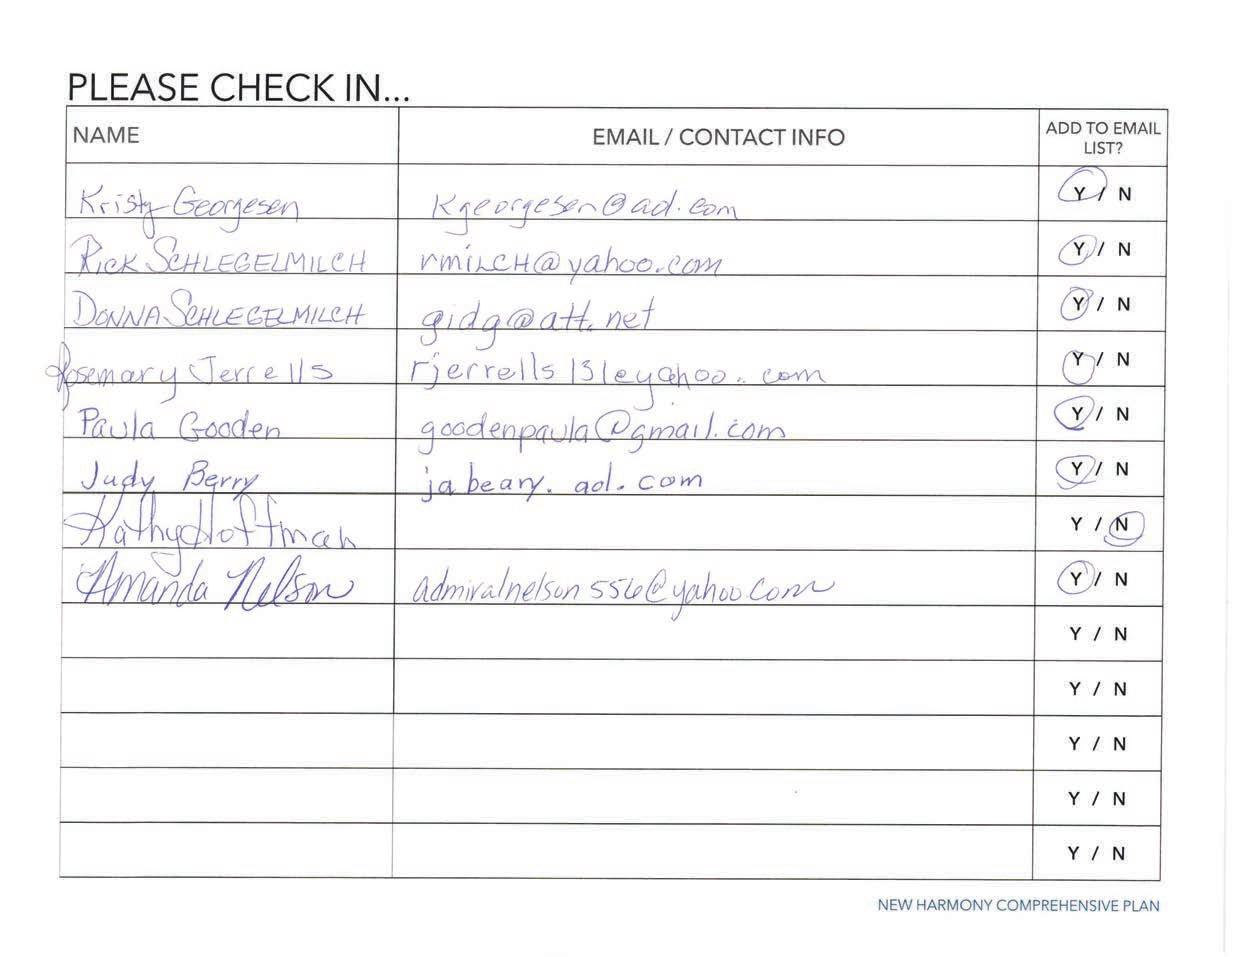 PLEASE CHECK IN...
NAME EMAIL / CONTACT INFO ADD TO EMAIL
LIST?
Kristy Georgesen Kgeorgesen@aol.com Y / N
RICK SCHLEGELMILCH rmiLCH@yahoo.com Y / N
DONNA SCHLEGELMILCH gidg@att.net Y / N
Rosemary Jerrells rjerrells131eyahoo.com Y / N
Paula Gooden goodenpaula@gmail.com Y / N
Judy Berry jabeary.aol.com Y / N
Kathy Hoffman Y / N
Amanda Nelson admiralnelson556@yahoo.com Y / N
Y / N
Y / N
Y / N
Y / N
Y / N
NEW HARMONY COMPREHENSIVE PLAN